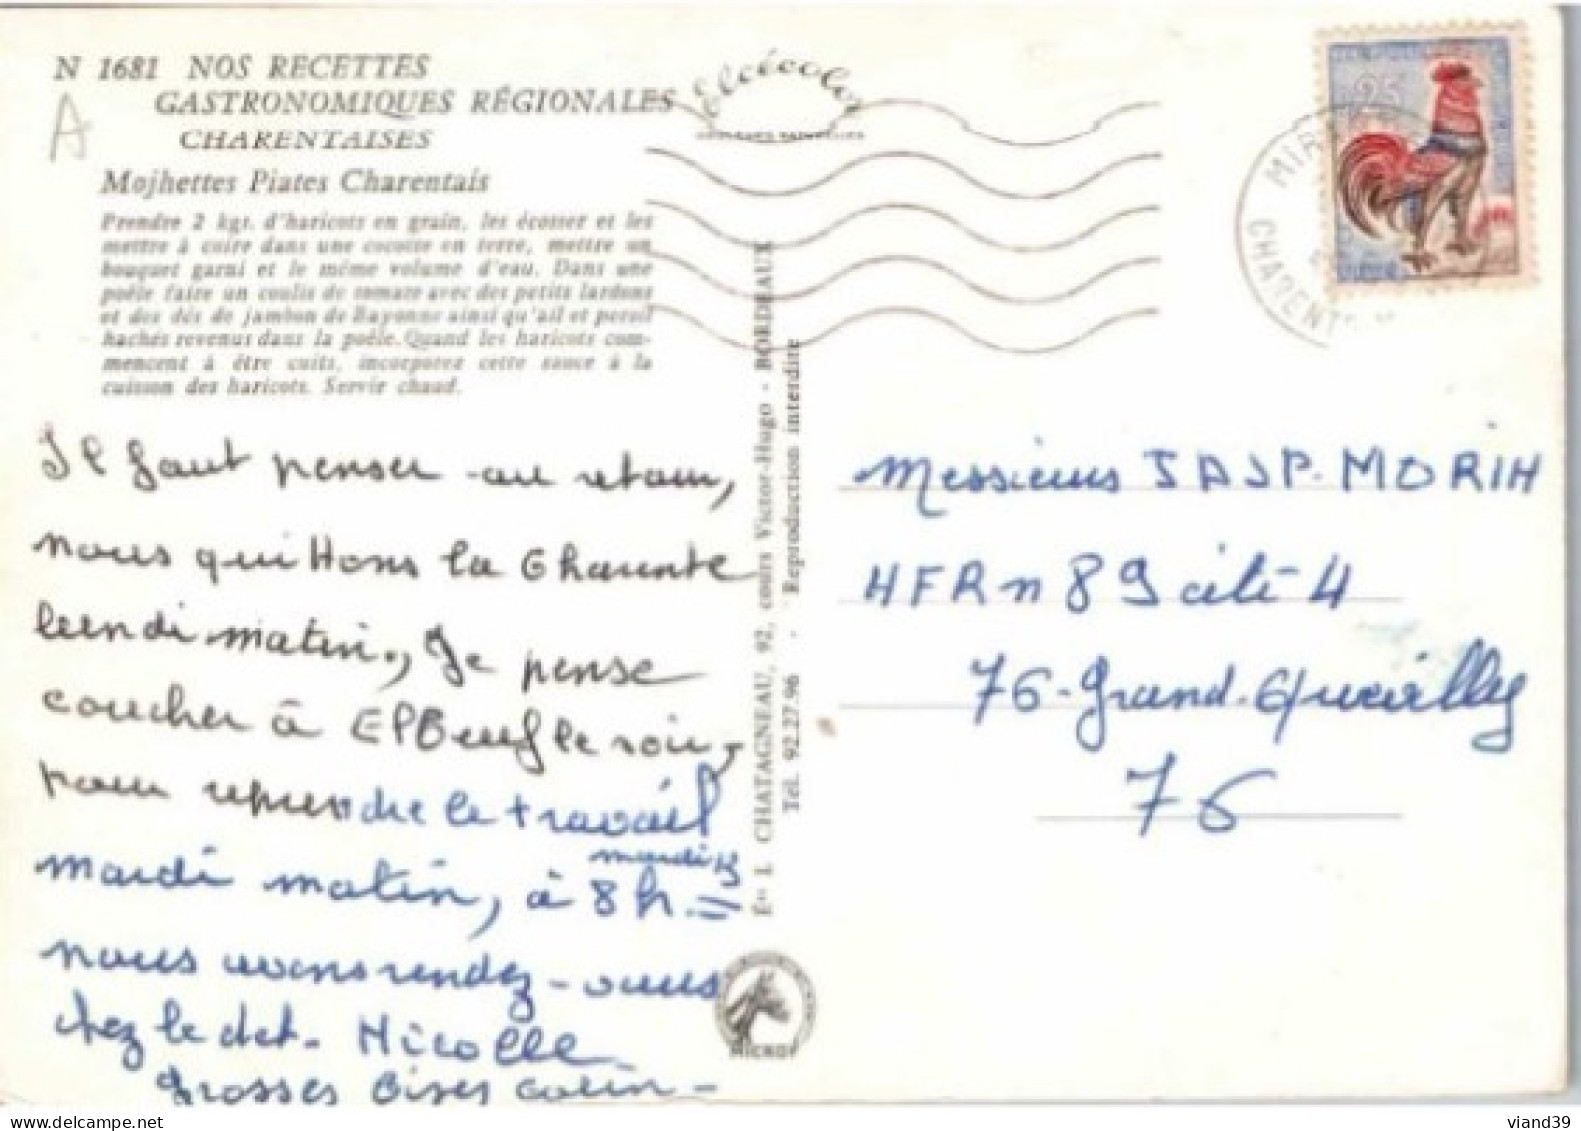 N 1681 NOS RECETTES
GASTRONOMIQUES RÉGIONALES
CHARENTAISES
A
Mojhettes Piates Charentais
Prendre 2 kgs. d'haricots en grain, les écosser et les
mettre à cuire dans une cocotte en terre, mettre un
bouquet garni et le même volume d'eau. Dans une
poële faire un coulis de tomate avec des petits lardons
et des dés de jambon de Bayonne ainsi qu'ail et persil
hachés revenus dans la poêle. Quand les haricots com-
mencent à être cuits, incorporez cette sauce à la
cuisson des haricots. Servir chaud.
Il faut penser au retour,
nous quittons la Charente
lundi matin, Je pense
coucher à Elbeuf le soir,
pour reprendre le travail
mardi matin, à 8h. =
mardi 15
nous avons rendez-vous
chez le
Nicolle
Grosses bises
Elcécolor
Éts L. CHATAGNEAU, 92, cours Victor-Hugo - BORDEAUX
Tél. 92.27.96 - Reproduction interdite
25
MIR
CHARENTE
Messieurs
MORIN
HFR n 89 cité 4
76-Grand-Quevilly
76
viand39